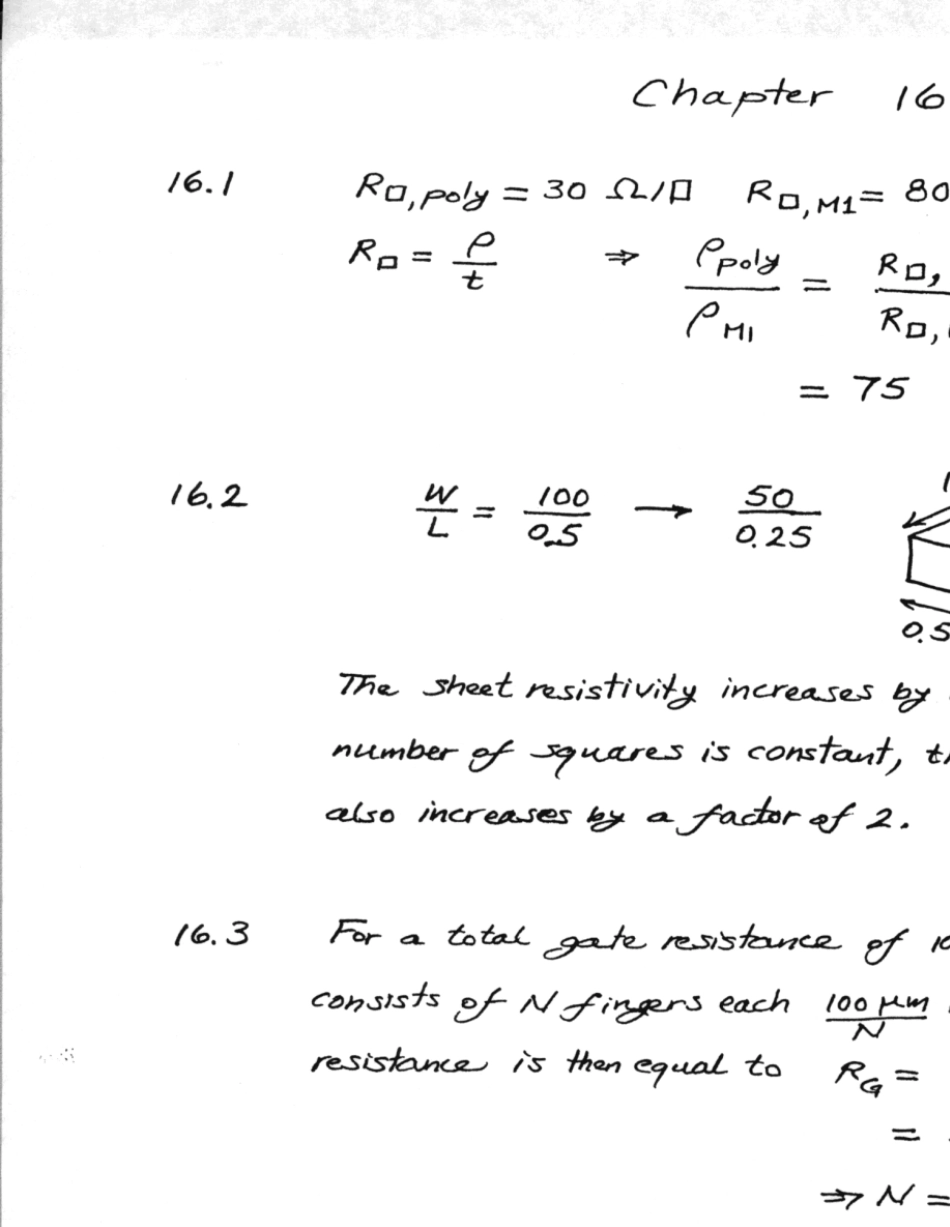 Chapter 16
16.1 R□,poly = 30 Ω/□ R□,M1 = 80
R□ = ρ/t ⇒ ρpoly/ρM1 = R□,/R□,
= 75
16.2 W/L = 100/0.5 → 50/0.25
0.5
The sheet resistivity increases by
number of squares is constant,
also increases by a factor of 2.
16.3 For a total gate resistance of 10
consists of N fingers each 100 μm/N
resistance is then equal to RG =
=
⇒ N =